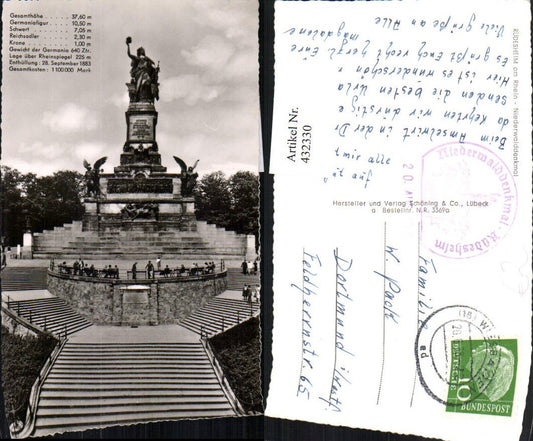 Gesamthöhe . . . 37,60 m
Germaniafigur . . 10,50 m
Schwert . . . . 7,05 m
Reichsadler . . . 2,30 m
Krone . . . . . 1,00 m
Gewicht der Germania 640 Ztr.
Lage über Rheinspiegel 225 m
Enthüllung: 28. September 1883
Gesamtkosten: 1 100 000 Mark
Artikel Nr.
432330
RÜDESHEIM am Rhein - Niederwalddenkmal
Beim in der Dr
da kehrten wir durstig e
senden die besten Urla
Hier ist es wunderschön
Es grüßt Euch recht herzl. Eure
magdalene
Viele grüße an Alle
wir alle
Niederwalddenkmal Rüdesheim
20.
Hersteller und Verlag Schöning & Co., Lübeck
Bestellnr. N.R. 5569a
Familie
W. Pack
Dortmund
Feldherrnstr. 65
(16)
10
DEUTSCHE
BUNDESPOST